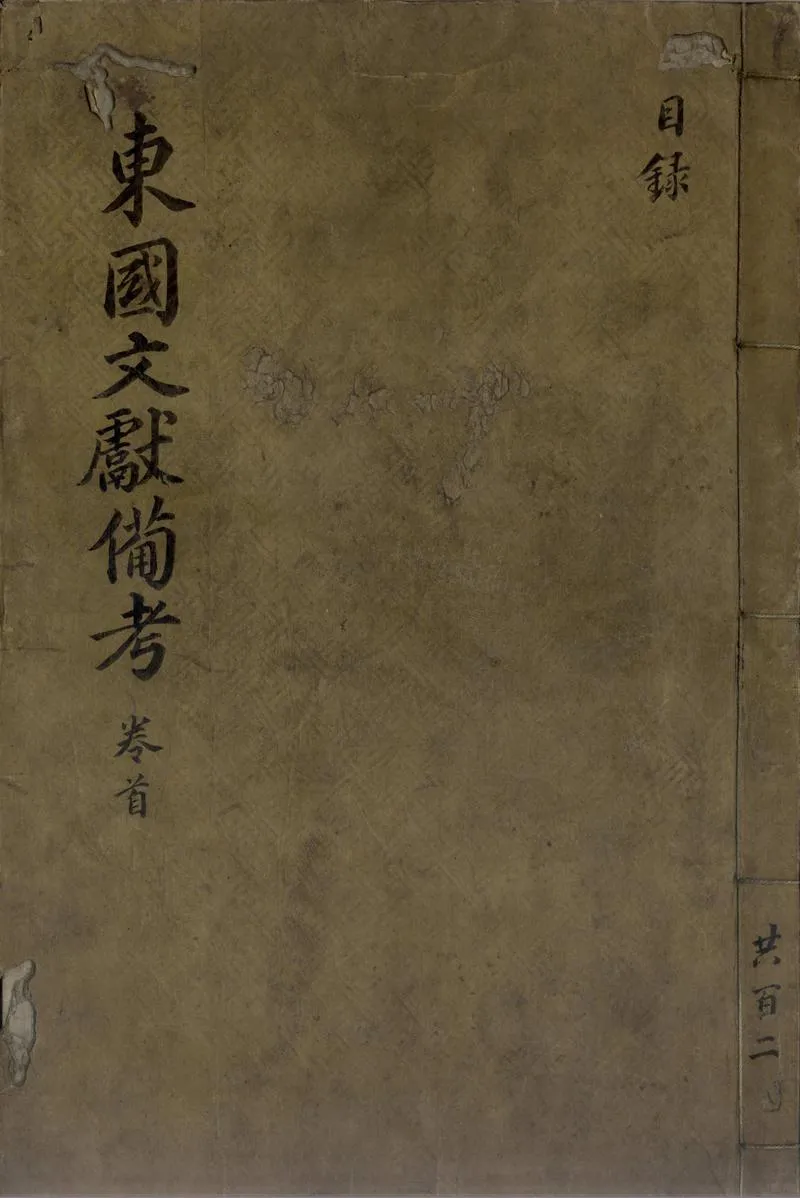 目録
東國文獻備考 卷首
共百二